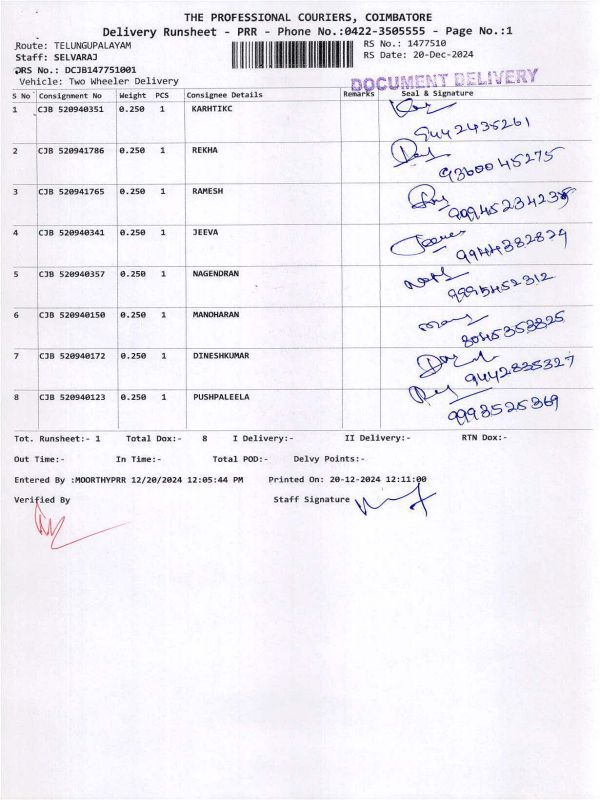 THE PROFESSIONAL COURIERS, COIMBATORE
Delivery Runsheet - PRR - Phone No.:0422-3505555 - Page No.:1
Route: TELUNGUPALAYAM RS No.: 1477510
Staff: SELVARAJ RS Date: 20-Dec-2024
DRS No.: DCJB147751001
Vehicle: Two Wheeler Delivery DOCUMENT DELIVERY
S No Consignment No Weight PCS Consignee Details Remarks Seal & Signature
1 CJB 520940351 0.250 1 KARHTIKC
9442435261
2 CJB 520941786 0.250 1 REKHA
9360045275
3 CJB 520941765 0.250 1 RAMESH
4 CJB 520940341 0.250 1 JEEVA
9944382824
5 CJB 520940357 0.250 1 NAGENDRAN
6 CJB 520940150 0.250 1 MANOHARAN
8045353825
7 CJB 520940172 0.250 1 DINESHKUMAR
9442835327
8 CJB 520940123 0.250 1 PUSHPALEELA
9993525369
Tot. Runsheet:- 1 Total Dox:- 8 I Delivery:- II Delivery:- RTN Dox:-
Out Time:- In Time:- Total POD:- Delvy Points:-
Entered By :MOORTHYPRR 12/20/2024 12:05:44 PM Printed On: 20-12-2024 12:11:00
Verified By Staff Signature